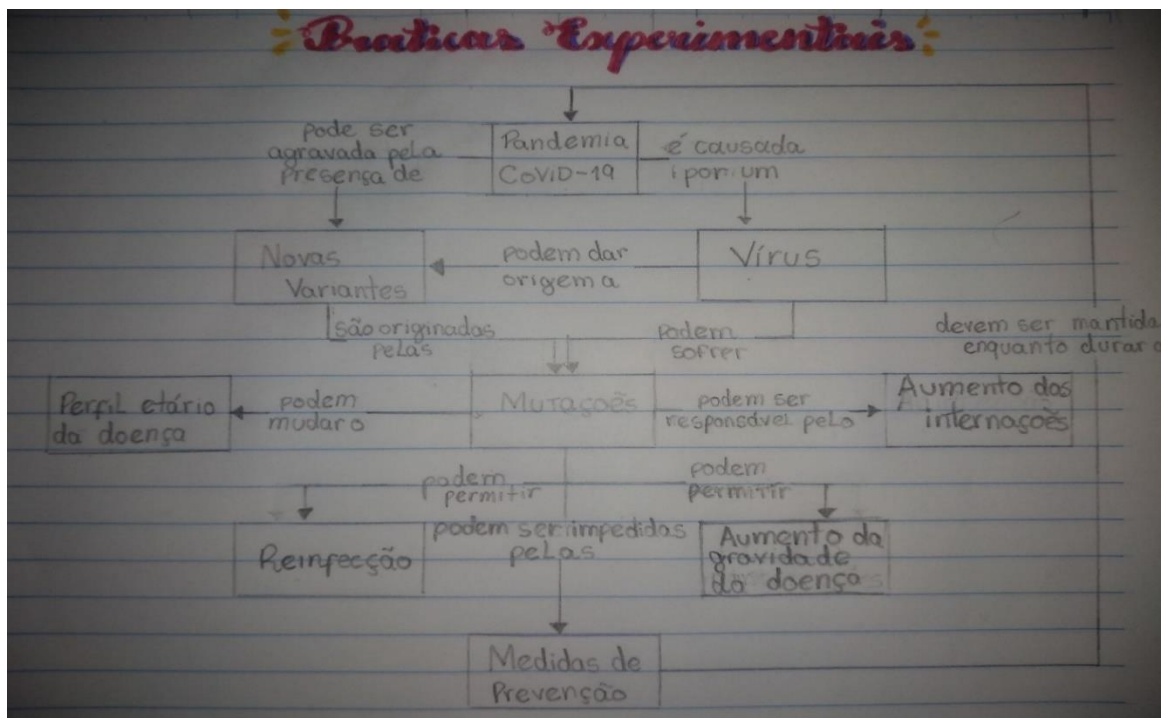 Praticas Experimentais
pode ser
agravada pela
presença de
Pandemia
CoViD-19
é causada
por um
Novas
Variantes
podem dar
origem a
Vírus
são originadas
pelas
Podem
sofrer
devem ser mantida
enquanto durar a
Perfil etário
da doença
podem
mudar o
Mutações
podem ser
responsável pelo
Aumento das
internações
podem
permitir
podem
permitir
Reinfecção
podem ser impedidas
pelas
Aumento da
gravidade
da doença
Medidas de
Prevenção